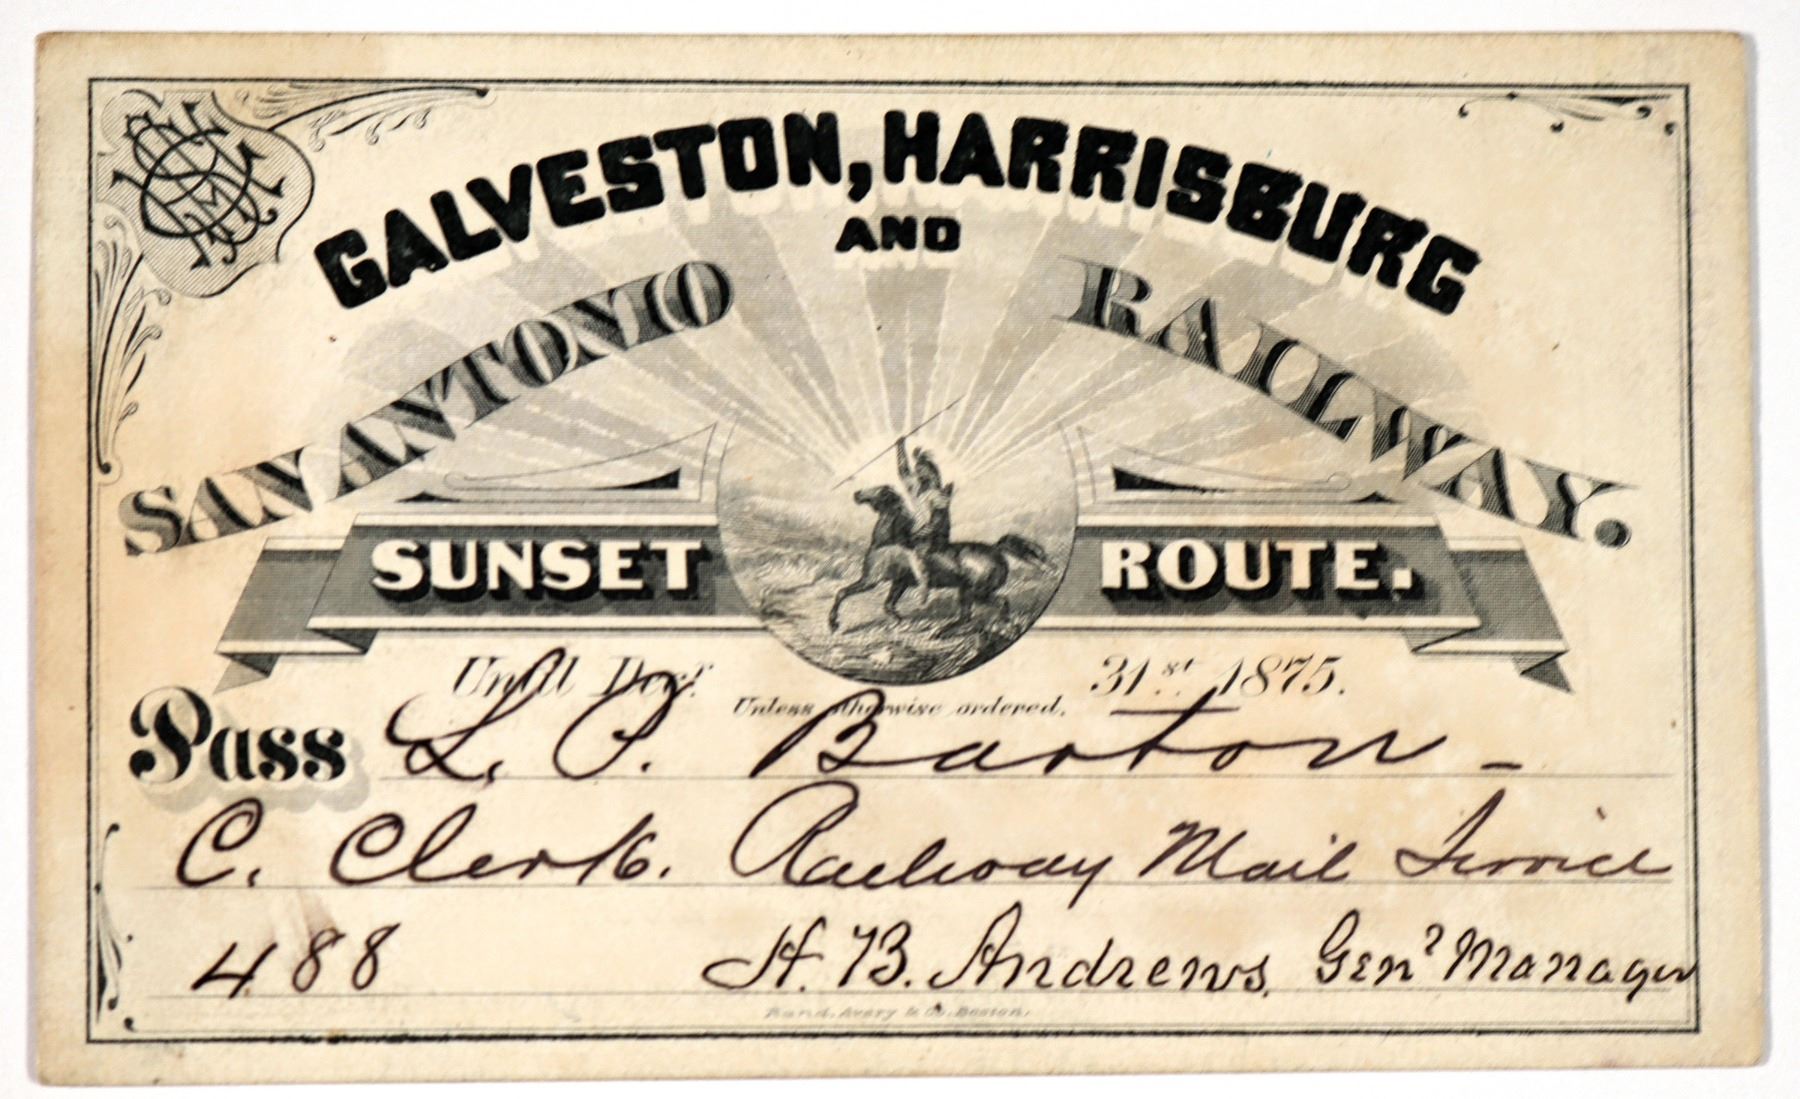 GALVESTON, HARRISBURG
AND
SAN ANTONIO RAILWAY.
SUNSET ROUTE.
Until Decr. 31st. 1875.
Unless otherwise ordered.
Pass L. P. Barton -
C. Clerk. Railway Mail Service
488 H. B. Andrews, Genl Manager
Rand, Avery & Co. Boston.